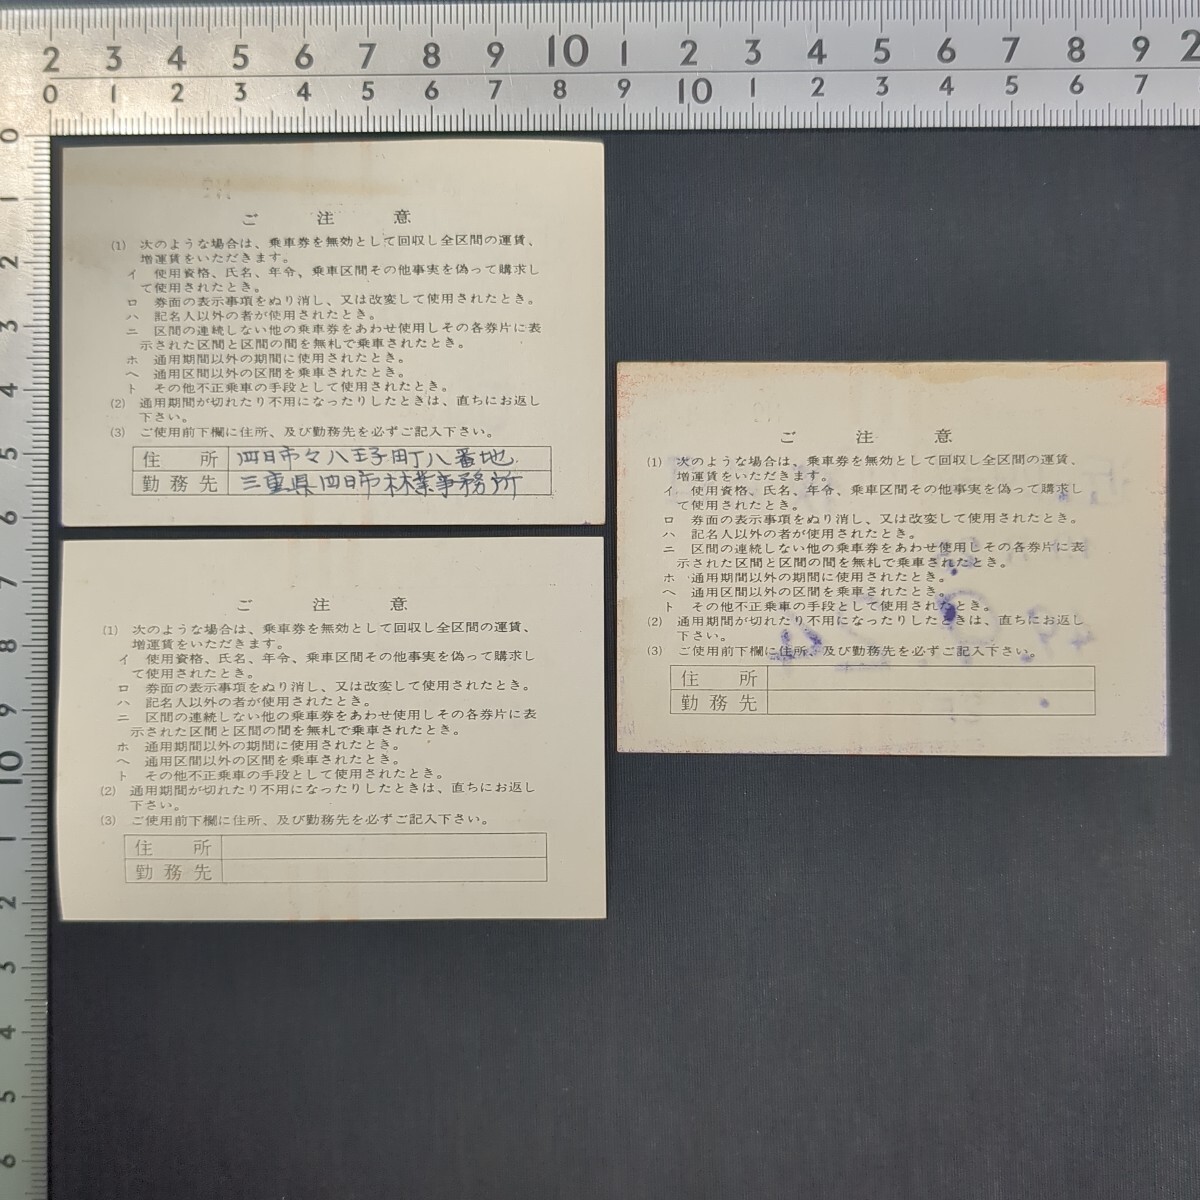 2 3 4 5 6 7 8 9 10 1 2 3 4 5 6 7 8 9 2
0 1 2 3 4 5 6 7 8 9 10 1 2 3 4 5 6 7
0 1 2 3 4 5 6 7 8 9 10 1 2 3 4 5 6
ご注意
(1) 次のような場合は、乗車券を無効として回収し全区間の運賃、
増運賃をいただきます。
イ 使用資格、氏名、年令、乗車区間その他事実を偽って購求し
て使用されたとき。
ロ 券面の表示事項をぬり消し、又は改変して使用されたとき。
ハ 記名人以外の者が使用されたとき。
ニ 区間の連続しない他の乗車券をあわせ使用しその各券片に表
示された区間と区間の間を無札で乗車されたとき。
ホ 通用期間以外の期間に使用されたとき。
ヘ 通用区間以外の区間を乗車されたとき。
ト その他不正乗車の手段として使用されたとき。
(2) 通用期間が切れたり不用になったりしたときは、直ちにお返し
下さい。
(3) ご使用前下欄に住所、及び勤務先を必ずご記入下さい。
住所 四日市々八王子町八番地
勤務先 三重県四日市林業事務所
ご注意
(1) 次のような場合は、乗車券を無効として回収し全区間の運賃、
増運賃をいただきます。
イ 使用資格、氏名、年令、乗車区間その他事実を偽って購求し
て使用されたとき。
ロ 券面の表示事項をぬり消し、又は改変して使用されたとき。
ハ 記名人以外の者が使用されたとき。
ニ 区間の連続しない他の乗車券をあわせ使用しその各券片に表
示された区間と区間の間を無札で乗車されたとき。
ホ 通用期間以外の期間に使用されたとき。
ヘ 通用区間以外の区間を乗車されたとき。
ト その他不正乗車の手段として使用されたとき。
(2) 通用期間が切れたり不用になったりしたときは、直ちにお返し
下さい。
(3) ご使用前下欄に住所、及び勤務先を必ずご記入下さい。
住所
勤務先
ご注意
(1) 次のような場合は、乗車券を無効として回収し全区間の運賃、
増運賃をいただきます。
イ 使用資格、氏名、年令、乗車区間その他事実を偽って購求し
て使用されたとき。
ロ 券面の表示事項をぬり消し、又は改変して使用されたとき。
ハ 記名人以外の者が使用されたとき。
ニ 区間の連続しない他の乗車券をあわせ使用しその各券片に表
示された区間と区間の間を無札で乗車されたとき。
ホ 通用期間以外の期間に使用されたとき。
ヘ 通用区間以外の区間を乗車されたとき。
ト その他不正乗車の手段として使用されたとき。
(2) 通用期間が切れたり不用になったりしたときは、直ちにお返し
下さい。
(3) ご使用前下欄に住所、及び勤務先を必ずご記入下さい。
住所
勤務先